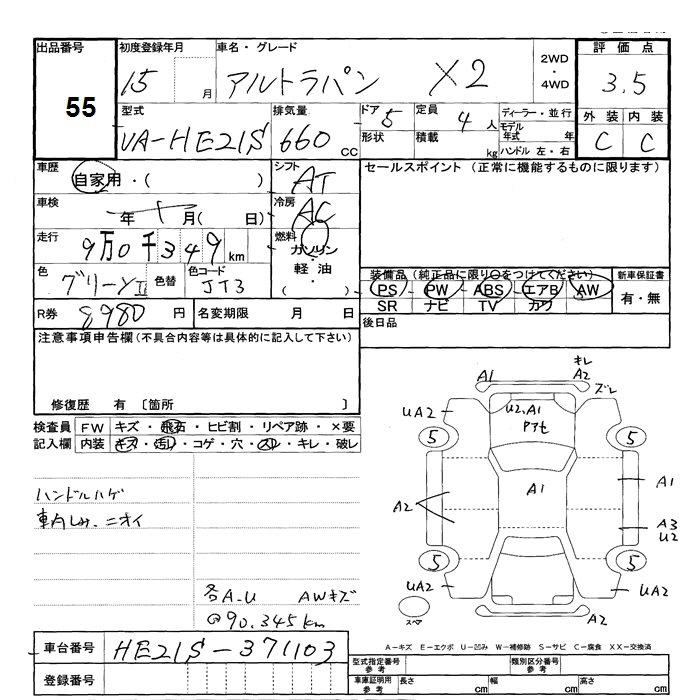 出品番号
55
初度登録年月
15 月
車名・グレード
アルトラパン X2
2WD
・
4WD
評価点
3.5
型式
UA-HE21S
排気量
660 cc
ドア 5
形状
定員 4 人
積載 kg
ディーラー・並行
モデル年式 年
ハンドル 左・右
外装 内装
C C
車歴
自家用・( )
シフト
AT
セールスポイント (正常に機能するものに限ります)
車検
年 月( 日)
冷房
AC
走行
9万0千349km
燃料
ガソリン
・
軽油
・
( )
色
グリーンⅡ
色替
色コード
JT3
装備品 (純正品に限り○をつけてください)
PS・PW・ABS・エアB・AW
SR ナビ TV カワ
新車保証書
有・無
R券 8980 円
名変期限 月 日
後日品
注意事項申告欄(不具合内容等は具体的に記入して下さい)
修復歴 有 〔箇所 〕
検査員記入欄
FW キズ・飛石・ヒビ割・リペア跡・×要
内装 キズ・汚れ・コゲ・穴・スレ・キレ・破レ
ハンドルハゲ
車内しみ、ニオイ
各A-U AWキズ
@90.345km
A1
キレ
A2
ズレ
UA2
U2.A1
UA2
5
5
A1
A1
A2
A3
U2
5
5
UA2
UA2
スペア
A2
車台番号 HE21S-371103
登録番号
A-キズ E-エクボ U-凹み W-補修跡 S-サビ C-腐食 XX-交換済
型式指定番号
参考
類別区分番号
参考
車庫証明用
参考
長さ cm 幅 cm 高さ cm